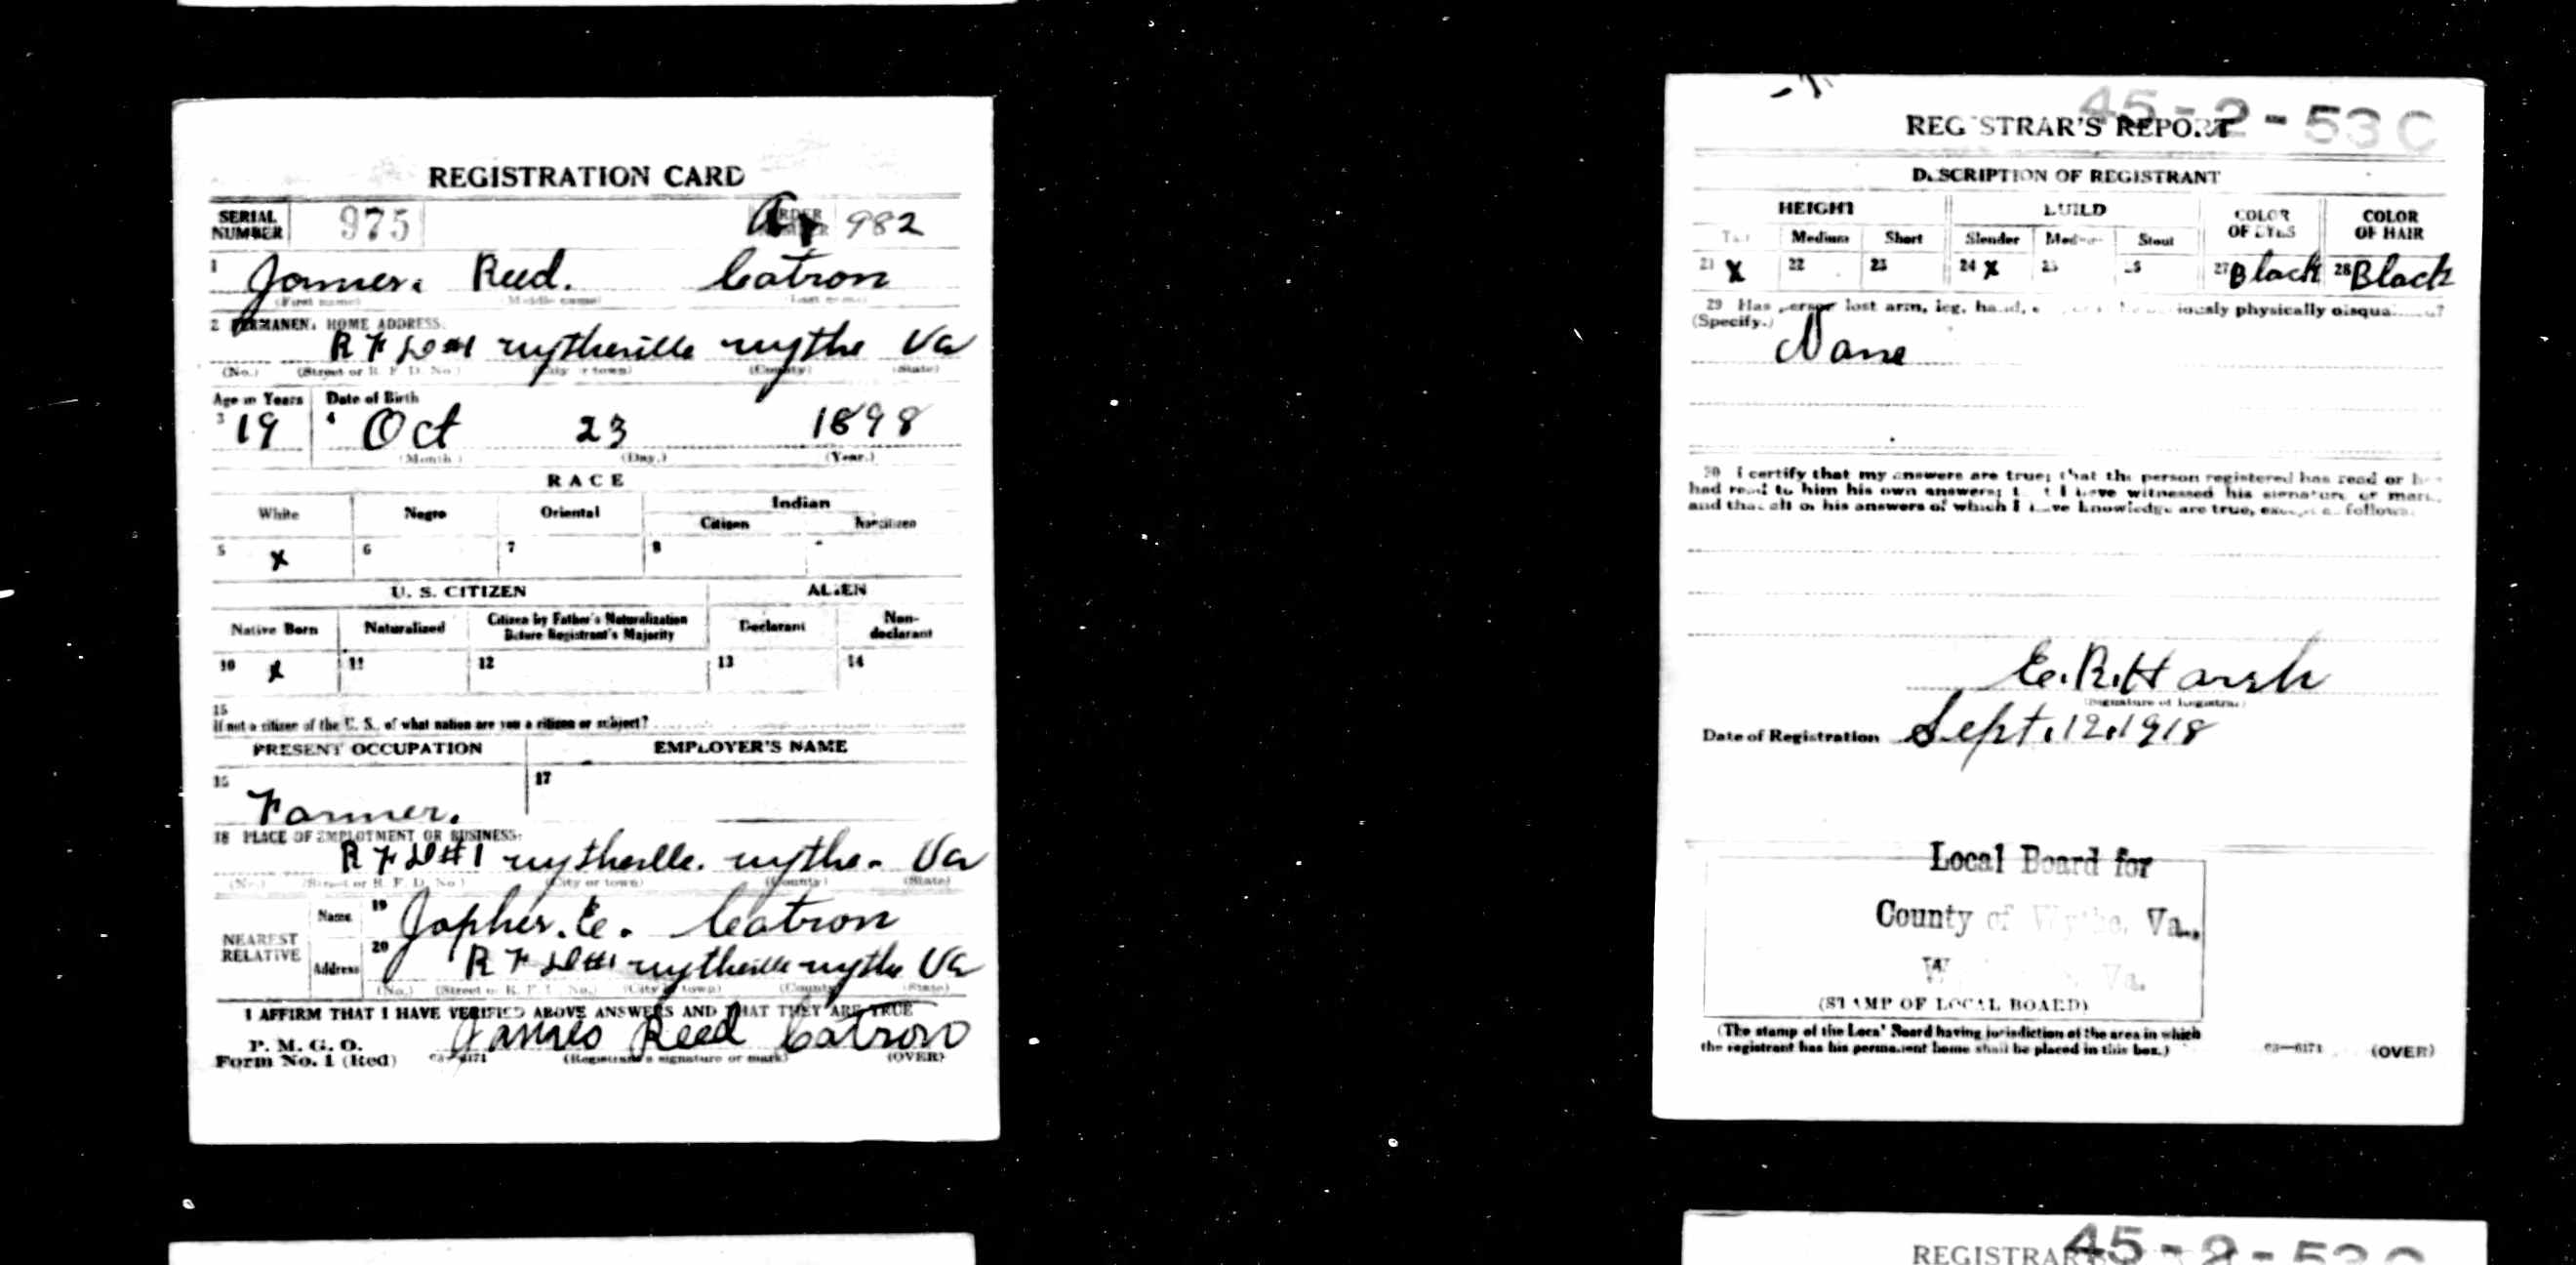 REGISTRATION CARD
SERIAL NUMBER 975 982
1 James. Reed. Catron
(First name) (Middle name) (Last name)
2 PERMANENT HOME ADDRESS:
R F D #1 wytheville wythe Va
(No.) (Street or R. F. D. No.) (City or town) (County) (State)
Age in Years Date of Birth
3 19 4 Oct 23 1898
(Month.) (Day.) (Year.)
RACE
White Negro Oriental Indian
Citizen Noncitizen
5 X 6 7 8
U. S. CITIZEN ALIEN
Native Born Naturalized Citizen by Father's Naturalization Before Registrant's Majority Declarant Non-declarant
10 X 11 12 13 14
15
If not a citizen of the U. S., of what nation are you a citizen or subject?
PRESENT OCCUPATION EMPLOYER'S NAME
16 17
Farmer.
18 PLACE OF EMPLOYMENT OR BUSINESS:
R F D #1 wytheville. wythe. Va
(No.) (Street or R. F. D. No.) (City or town) (County) (State)
NEAREST RELATIVE
Name 19 Japher. C. Catron
Address 20 R F D #1 wytheville wythe Va
(No.) (Street or R. F. D. No.) (City or town) (County) (State)
I AFFIRM THAT I HAVE VERIFIED ABOVE ANSWERS AND THAT THEY ARE TRUE
P. M. G. O.
Form No. 1 (Red) 03—6171 James Reed Catron
(Registrant's signature or mark) (OVER)
45-2-53 C
REGISTRAR'S REPORT
DESCRIPTION OF REGISTRANT
HEIGHT BUILD COLOR OF EYES COLOR OF HAIR
Tall Medium Short Slender Medium Stout
21 X 22 23 24 X 25 26 27 Black 28 Black
29 Has person lost arm, leg, hand, obviously physically disqualified?
(Specify.)
None
30 I certify that my answers are true; that the person registered has read or has
had read to him his own answers; that I have witnessed his signature or mark,
and that all of his answers of which I have knowledge are true, except as follows:
E. R. Harsh
(Signature of Registrar)
Date of Registration Sept. 12. 1918
Local Board for
County of Wythe, Va.,
Va.
(STAMP OF LOCAL BOARD)
(The stamp of the Local Board having jurisdiction of the area in which
the registrant has his permanent home shall be placed in this box.)
03—6171 (OVER)
45-2-53 C
REGISTRAR